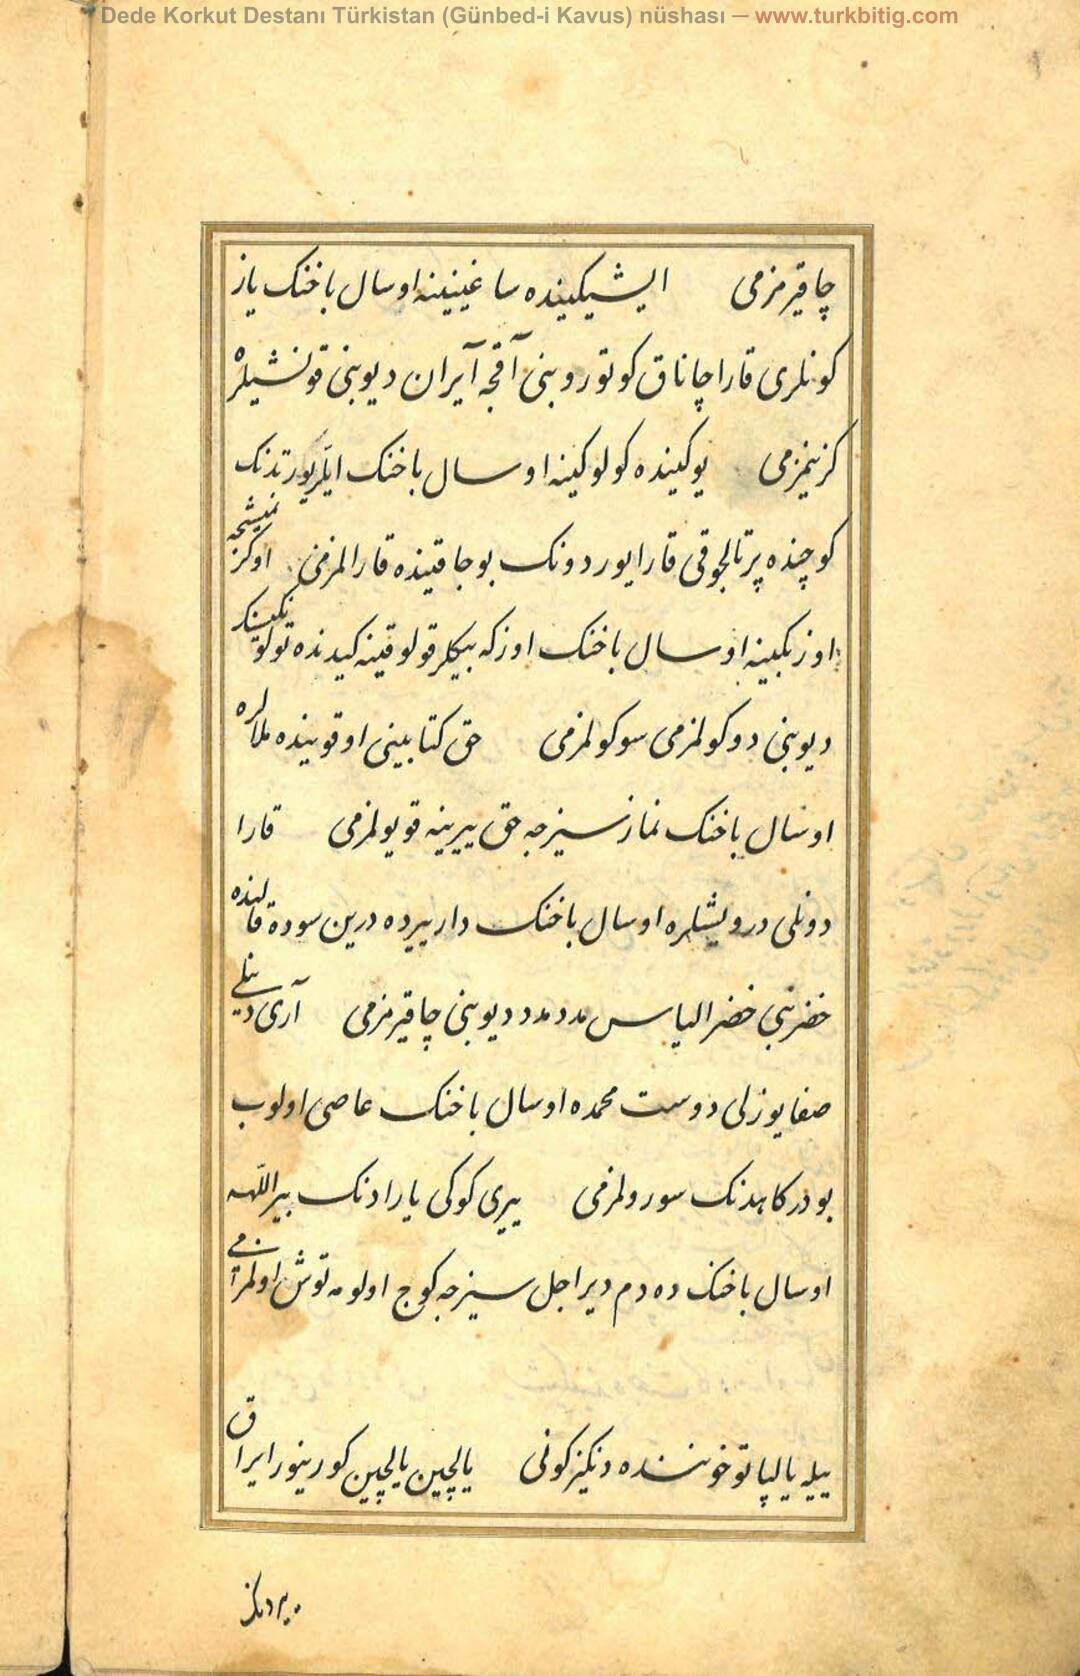 Dede Korkut Destanı Türkistan (Günbed-i Kavus) nüshası — www.turkbitig.com
چاقیرمزمی ایشیکینده ساغینینه اوسال باخنک یاز
کونلری قارا چاناق کوتوروبنی آقجه آیران دیوبنی قونشیلره
کزینمزمی یوکینده کولوکینه اوسال باخنک ایللر یورتدنک
کوچنده پرتالجوقی قارا یوردونک بوجاقینده قارالمزمی اوکز
اوز بکینه اوسال باخنک اوزکه بیکلر قولوقینه کیدنده تولو
دیوبنی دوکولمزمی سوکولمزمی حق کتابینی اوقوینده ملالره
اوسال باخنک نماز سیزجه حق ییرینه قویولمزمی قارا
دونلی درویشلره اوسال باخنک دار ییرده درین سوده قالنده
خضر نبی خضر الیاس مدد مدد دیوبنی چاقیرمزمی آری دینلی
صفا یوزلی دوست محمده اوسال باخنک عاصی اولوب
بو درکاهدنک سورولمزمی ییری کوکی یارادنک بیر اللهه
اوسال باخنک ده دم دیر اجل سیزجه کوج اولومه توش اولمزمی
ییله یالپا توخوننده دنکیز کونی یالچین یالچین کورینور ایراق
بیر دنکز